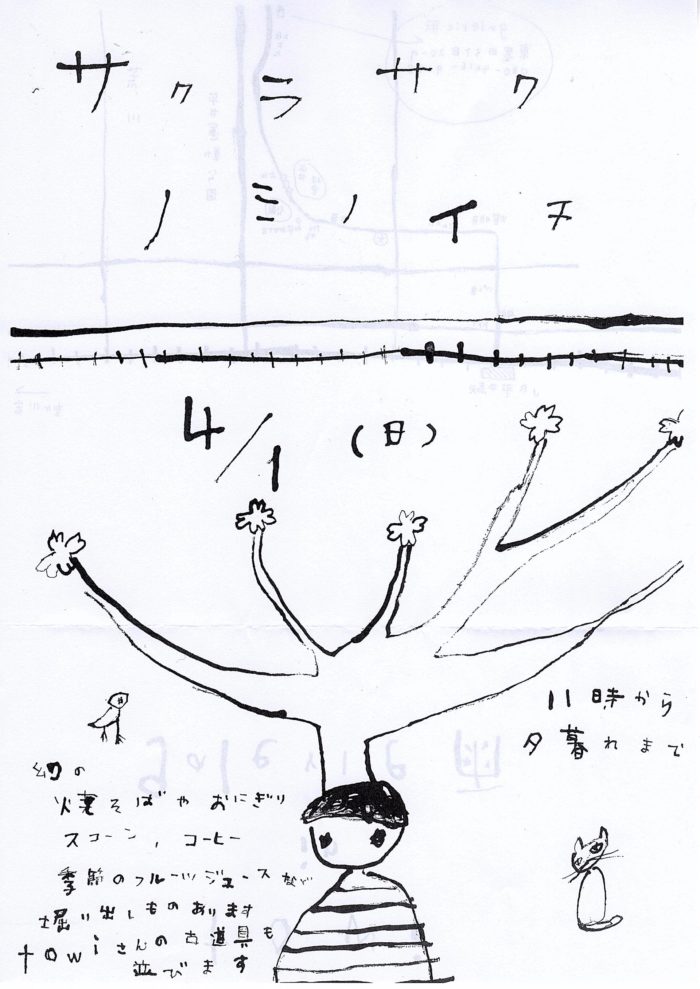 サクラサク
ノミノイチ
4/1(日)
11時から
夕暮れまで
幻の
焼そばやおにぎり
スコーン,コーヒー
季節のフルーツジュースなど
堀り出しものあります
towiさんの古道具も
並びます
galerie